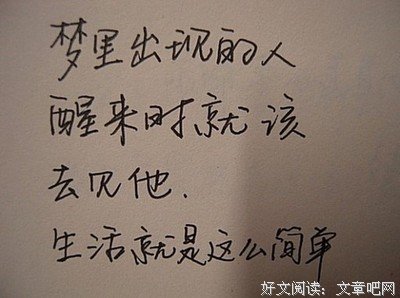 梦里出现的人
醒来时就该
去见他.
生活就是这么简单
好文阅读：文章吧网